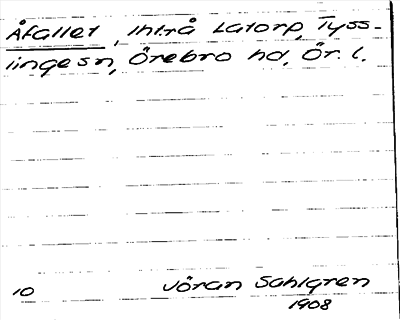 Åfallet, Intrå Latorp, Tyss-
linge sn, Örebro hd, Ör. l.
10
Jöran Sahlgren
1908